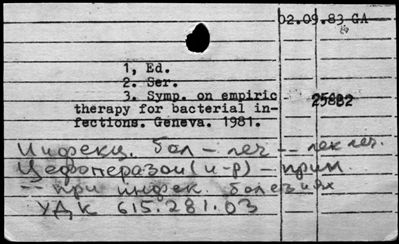 02.09.83 GA
1, Ed.
2. Ser.
3. Symp. on empiric
25882
therapy for bacterial in-
fections. Geneva. 1981.
Инфекц. бол - леч -- лек леч.
Цефоперазон (и-р) - прим.
-- при инфек. болезнях
УДК 615.281.03